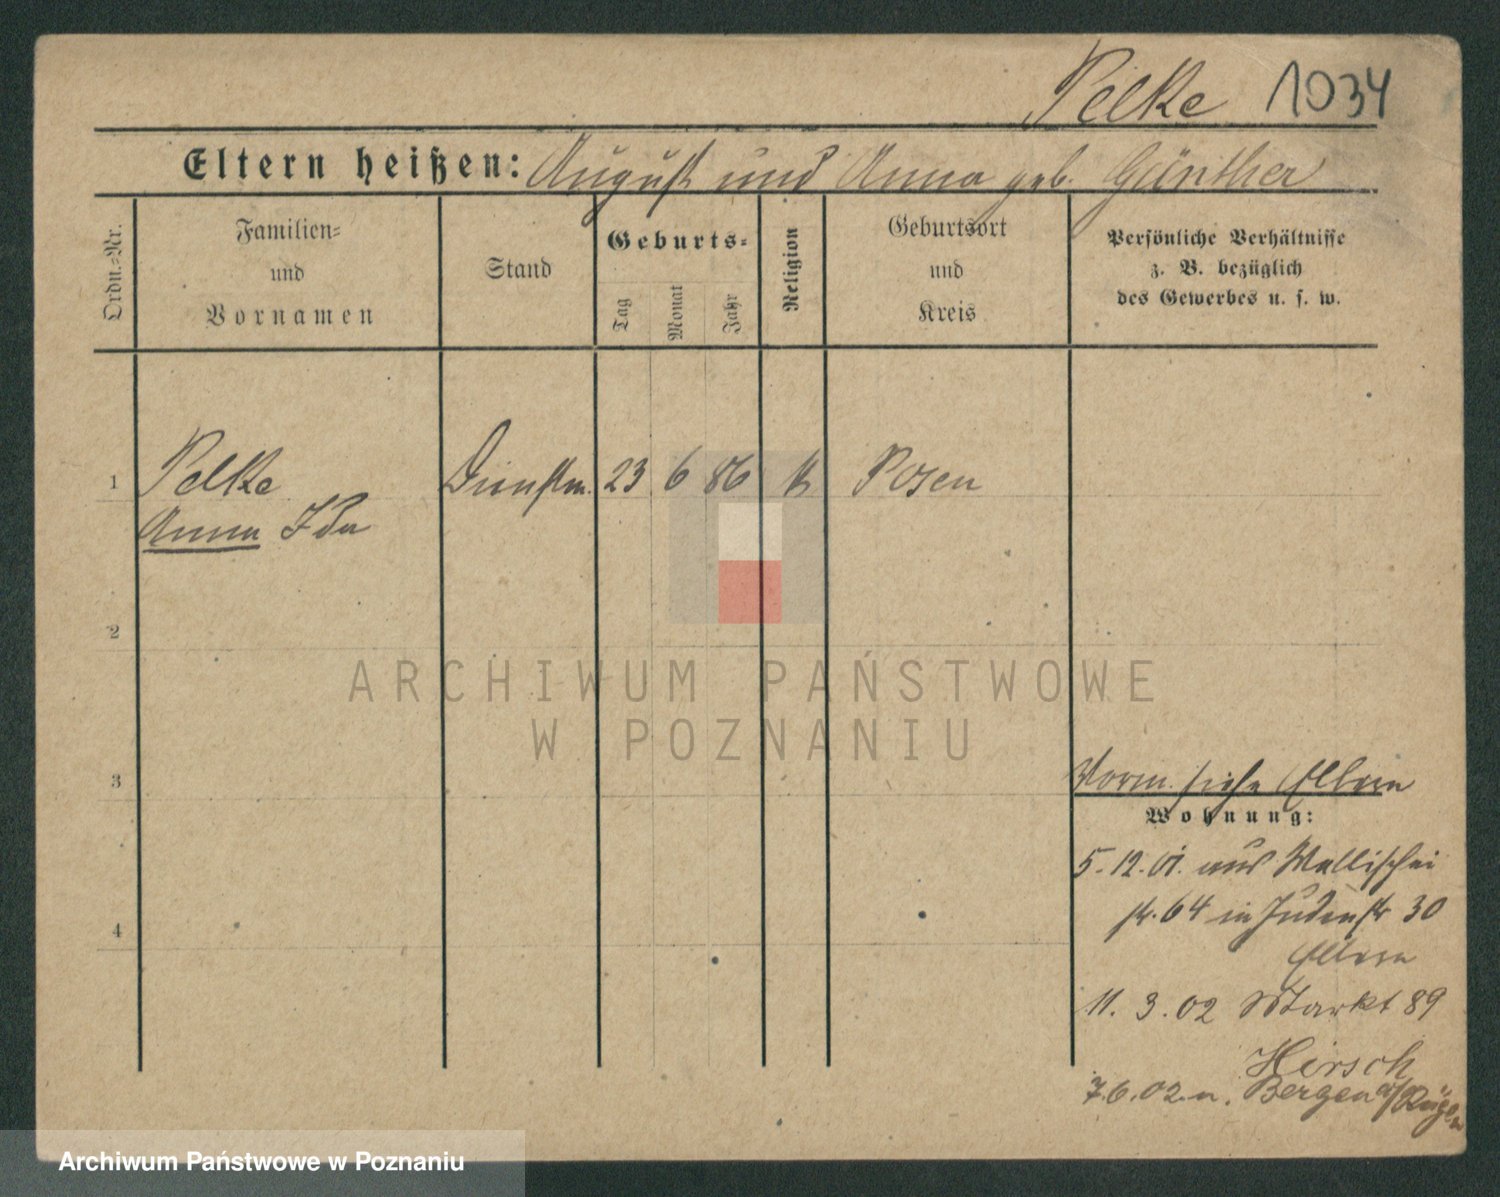 Pelke 1034
Eltern heißen: August und Anna geb. Günther
Ordn.-Nr.
Familien-
und
Vornamen
Stand
Geburts-
Tag
Monat
Jahr
Religion
Geburtsort
und
Kreis
Persönliche Verhältnisse
z. B. bezüglich
des Gewerbes u. s. w.
1 Pelke Dienstm. 23 6 86 k Posen
Anna Ida
2
3
4
Vorm. siehe Eltern
Wohnung:
5.12.01. aus Wallischei
str. 64 in Judenstr 30
Eltern
11. 3. 02 Markt 89
Hirsch
7.6.02. n. Bergen a/Rügen
ARCHIWUM PAŃSTWOWE
W POZNANIU
Archiwum Państwowe w Poznaniu